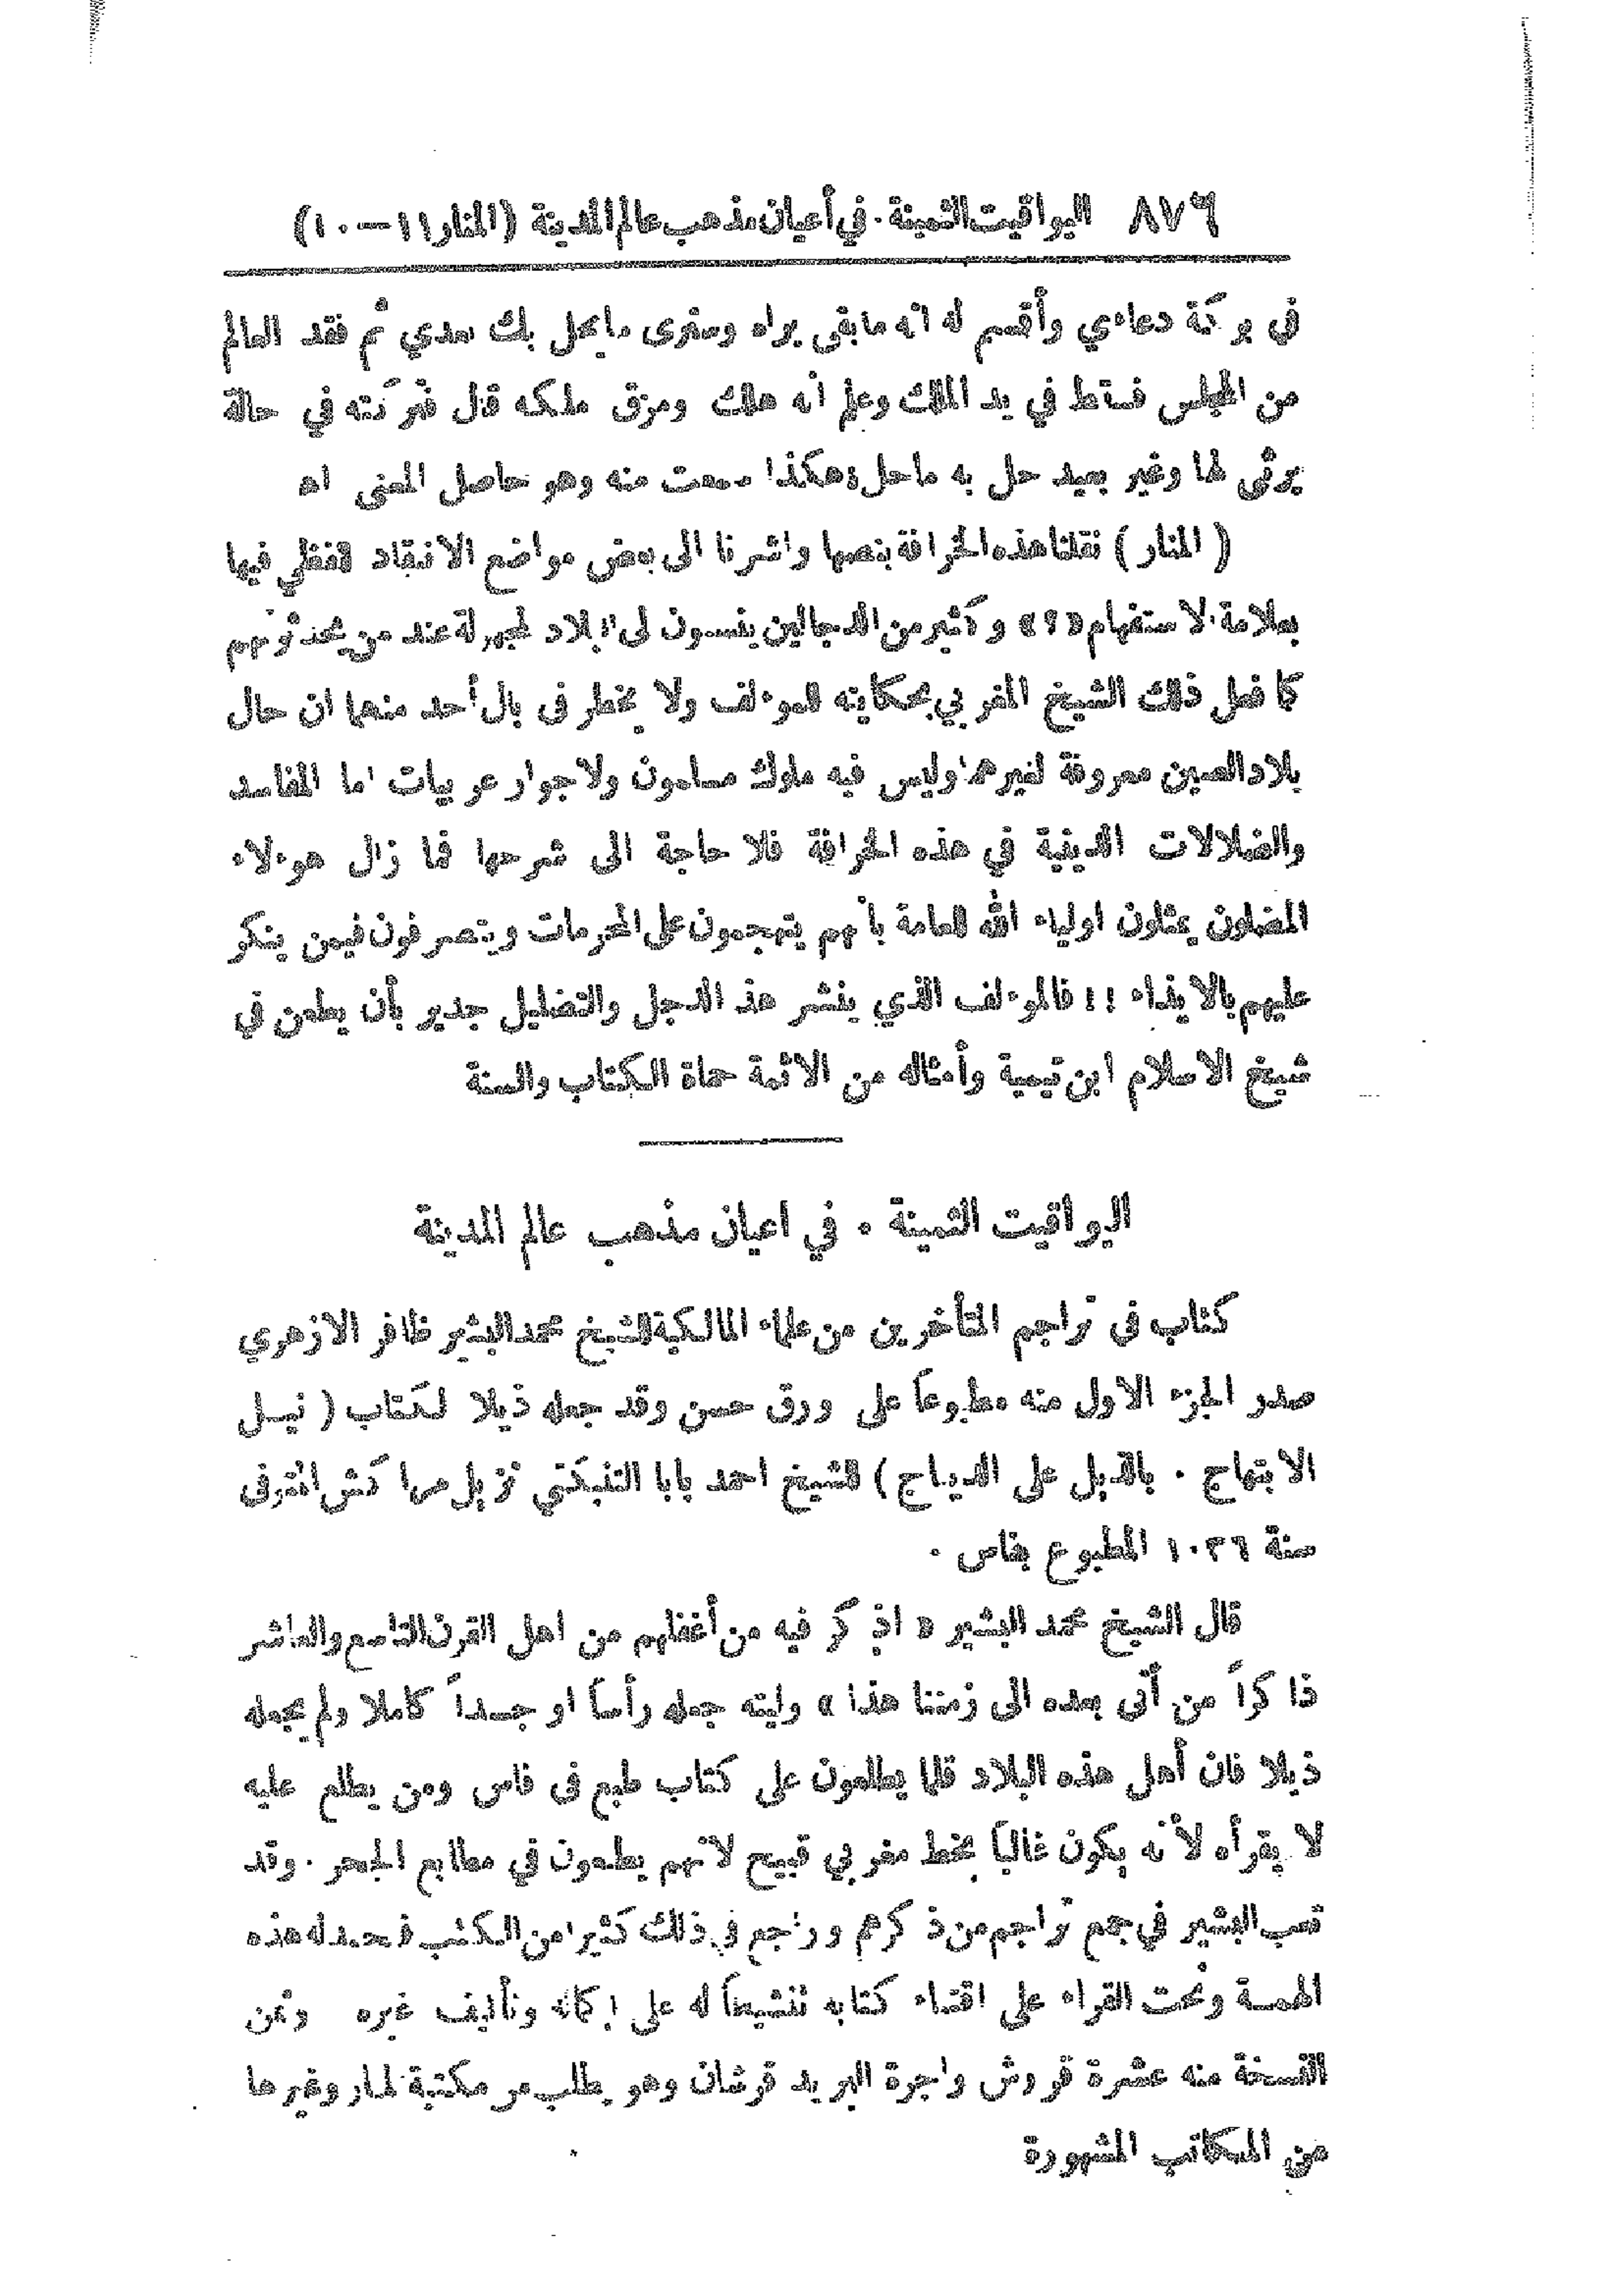 ٨٧٦ اليواقيت الثمينة . في أعيان مذهب عالم المدينة (المنار ١٠—١١)
في بركة دعاءي وأقسم له انه مابقي يراه وسترى ما يحل بك بعدي ثم فقد العالم
من المجلس فسقط في يد الملك وعلم انه هلك ومزق ملكه قال فتركته في حالة
يرثى لها وغير بعيد حل به ماحل وهكذا سمعت منه وهو حاصل المعنى اه
(المنار) نقلنا هذه الخرافة بنصها واشرنا الى بعض مواضع الانتقاد اللفظي فيها
بعلامة الاستفهام «؟» وكثير من الدجالين ينسبون الى البلاد المجهولة عند من يحدثونهم
كما فعل ذلك الشيخ المغربي بحكايته للموءلف ولا يخطر في بال أحد منهما ان حال
بلاد الصين معروفة لغيرهما وليس فيه ملوك مسلمون ولا جوار عربيات اما المفاسد
والضلالات الدينية في هذه الخرافة فلا حاجة الى شرحها فما زال هوءلاء
المضلون يمثلون اولياء الله للعامة بأنهم يتهجمون على المحرمات ويتصرفون فيمن ينكر
عليهم بالايذاء !! فالموءلف الذي ينشر هذا الدجل والتضليل جدير بأن يطعن في
شيخ الاسلام ابن تيمية وأمثاله من الائمة حماة الكتاب والسنة
اليواقيت الثمينة . في اعيان مذهب عالم المدينة
كتاب في تراجم المتأخرين من علماء المالكية للشيخ محمد البشير ظافر الازهري
صدر الجزء الاول منه مطبوعاً على ورق حسن وقد جعله ذيلا لكتاب (نيل
الابتهاج . بالذيل على الديباج) للشيخ احمد بابا التنبكتي نزيل مراكش المتوفى
سنة ١٠٣٦ المطبوع بفاس .
قال الشيخ محمد البشير « اذكر فيه من أغفلهم من اهل القرن التاسع والعاشر
ذاكراً من أتى بعده الى زمننا هذا » وليته جعله رأساً او جسداً كاملا ولم يجعله
ذيلا فان أهل هذه البلاد قلما يطلعون على كتاب طبع في فاس ومن يطلع عليه
لا يقرأه لأنه يكون غالباً بخط مغربي قبيح لانهم يطبعون في مطابع الحجر . وقد
تعب البشير في جمع تراجم من ذكرهم وراجع في ذلك كثيرا من الكتب فنحمد له هذه
الهمة ونحث القراء على اقتناء كتابه تنشيطاً له على إكماله وتأليف غيره وثمن
النسخة منه عشرة قروش واجرة البريد قرشان وهو يطلب من مكتبة المنار وغيرها
من المكاتب المشهورة